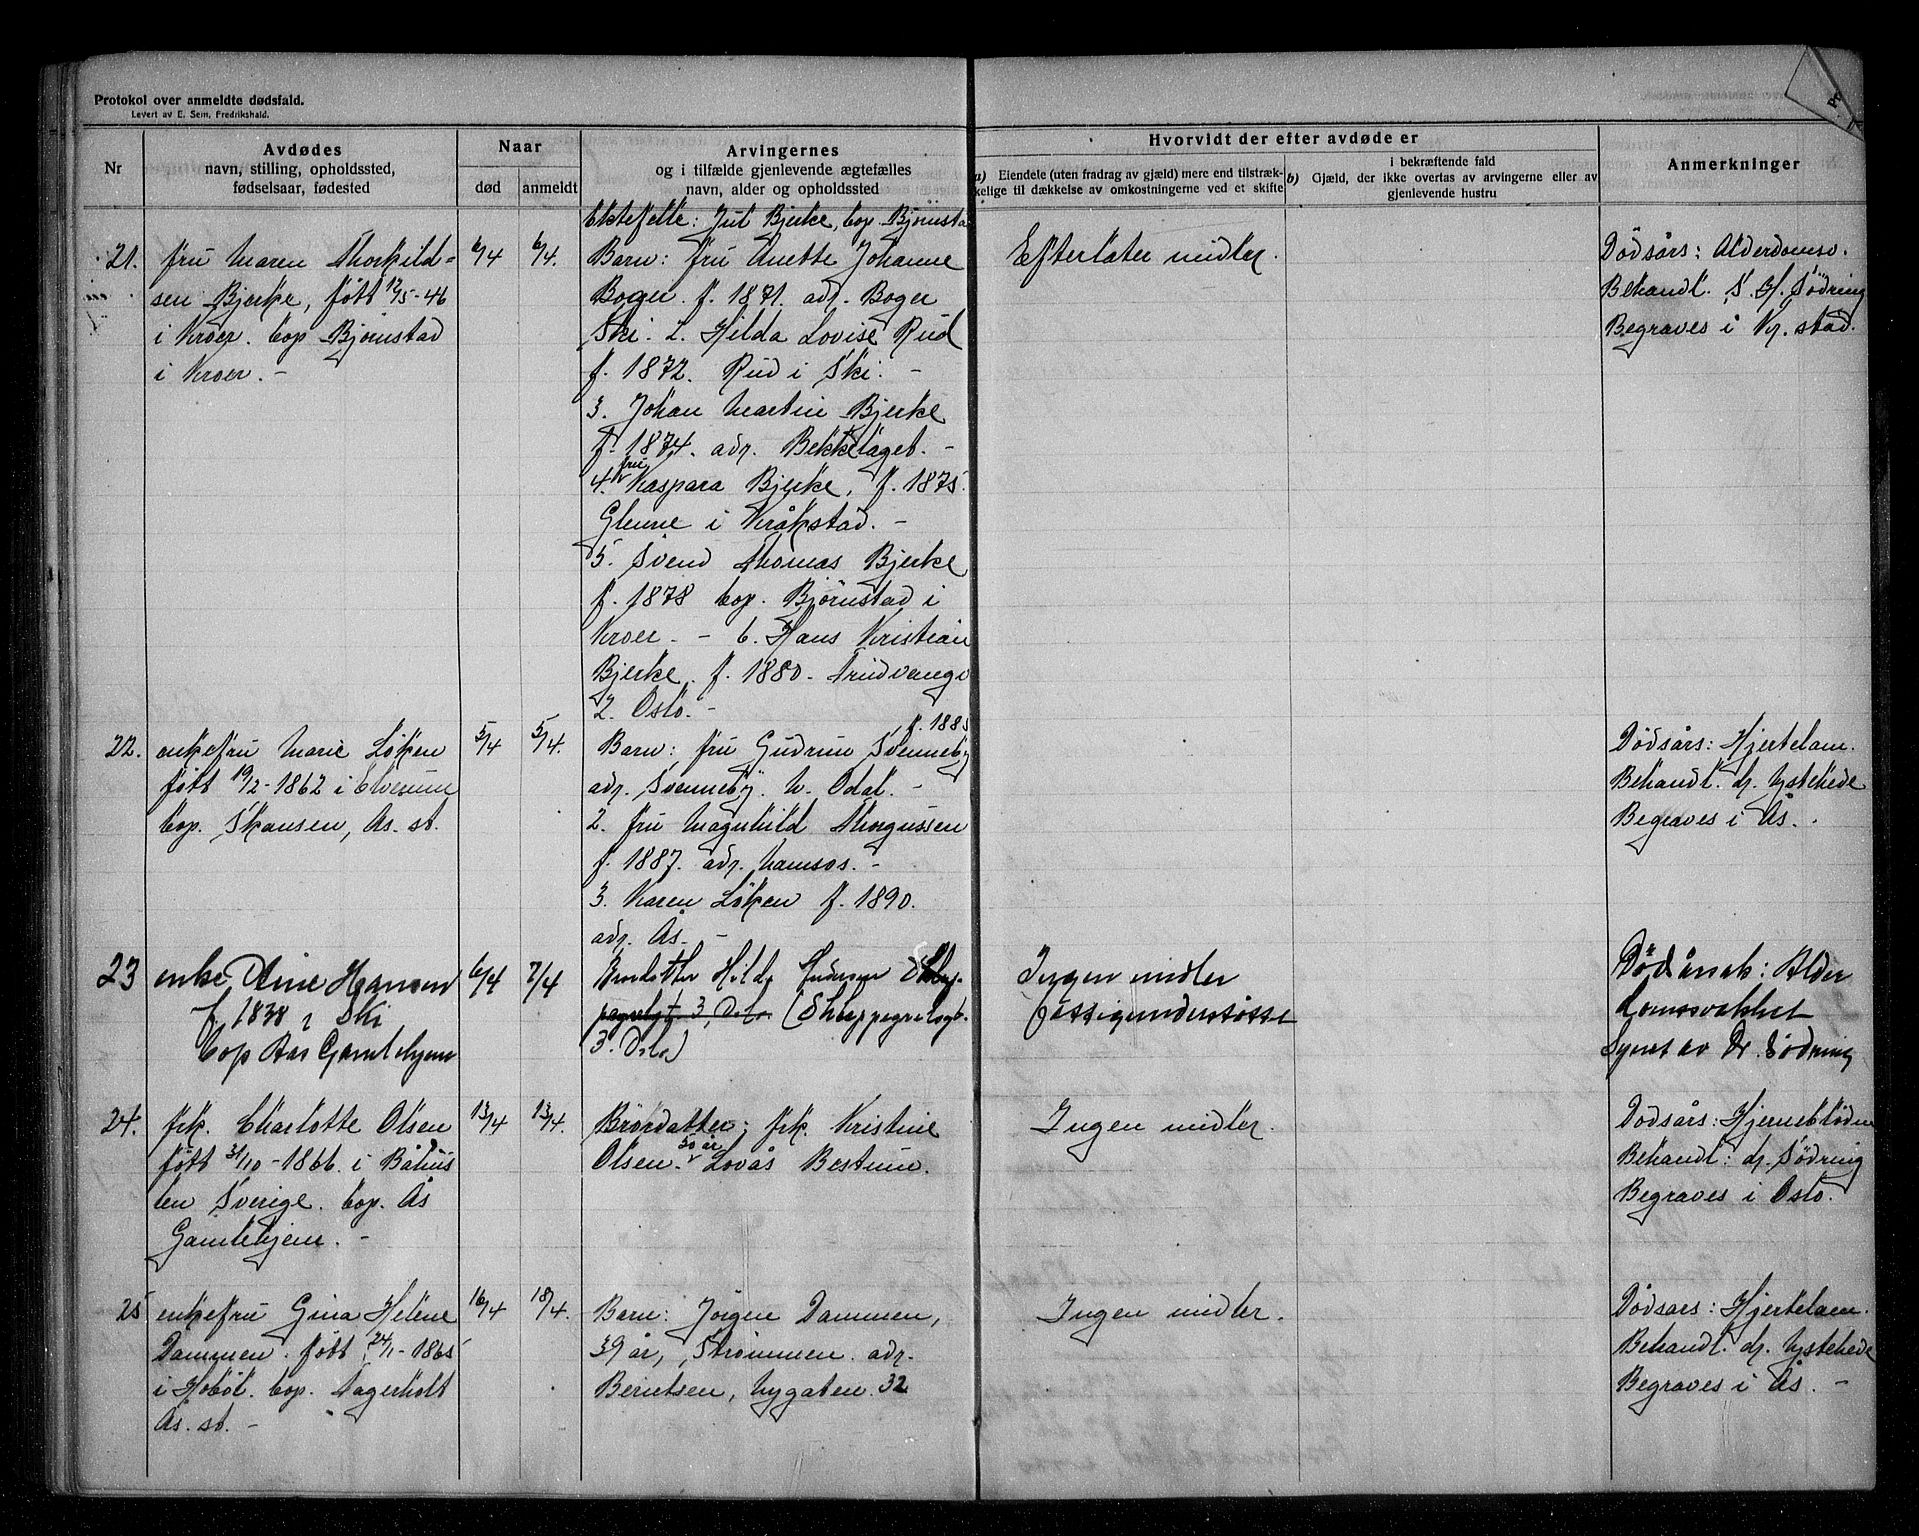 Protokol over anmeldte dødsfald.
Levert av E. Sem, Fredrikshald.
Nr
Avdødes
navn, stilling, opholdssted,
fødselsaar, fødested
Naar
død
anmeldt
Arvingernes
og i tilfælde gjenlevende ægtefælles
navn, alder og opholdssted
Hvorvidt der efter avdøde er
a) Eiendele (uten fradrag av gjæld) mere end tilstræk-
kelige til dækkelse av omkostningerne ved et skifte
i bekræftende fald
b) Gjæld, der ikke overtas av arvingerne eller av
gjenlevende hustru
Anmerkninger
21.
fru Maren Thorkild=
sen Bjerke, født 12/5-46
i Kroer. bop Bjørnstad
i Kroer. -
6/4
6/4.
Ektefelle: Jul Bjerke, bop. Bjørnsta
Barn: fru Anette Johanne
Boger. f. 1871. adr. Boger
Ski. 2. Hilda Lovise Rud
f. 1872. Rud i Ski. -
3. Johan Martin Bjerke
f. 1874. adr. Bekkelaget. -
4. fru Kaspara Bjerke, f. 1875.
Glenne i Kråkstad. -
5. Svend Thomas Bjerke
f. 1878 bop. Bjørnstad i
Kroer. - 6. Hans Kristian
Bjerke. f. 1880. Trudvangv
2. Oslo. -
Efterlater midler.
Dødsårs: Alderdomsv.
Behandl. S. H. Södring
Begraves i Kr. stad.
22.
enkefru Marie Løken
født 19/2-1862 i Elverum
bop. Skansen, Ås. st.
5/4
5/4.
f. 1885
Barn: fru Gudrun Svenneby
adr. Svenneby. N. Odal. -
2. fru Magnhild Thorgussen
f. 1887. adr. Namsos. -
3. Karen Løken f. 1890.
adr. Ås. -
Dødsårs: Hjertelam.
Behandl. dr. Nystehede
Begraves i Ås.
23
enke Aine Hansen
f. 1838 i Ski
bop Aas Gamlehjem
6/4
7/4
Brordatter Hilda Andersen
3, Oslo (Schleppegrelsgt.
3. Oslo)
Ingen midler
fattigunderstøttet
Dødårsak: Alder
domssvakhet
Synet av Dr. Södring
24.
frk. Charlotte Olsen
født 31/10-1866. i Båhus
len Sverige. bop. Ås
Gamlehjem. -
13/4
13/4.
Brordatter: frk. Kristine
Olsen. 50 år Lovås Bestum.
Ingen midler.
Dødsårs: Hjerneblødn
Behandl: dr. Södring
Begraves i Oslo.
25
enkefru Gina Helene
Dammen. født 24/1-1865
i Hobøl. bop. Nagerholt
Ås. st. -
16/4
18/4.
Barn: Jørgen Dammen,
39 år, Strømmen. adr.
Berntsen, Nygaten. 32
Ingen midler.
Dødsårs: Hjertelam.
Behandl. dr. Nystehede
Begraves i Ås. -